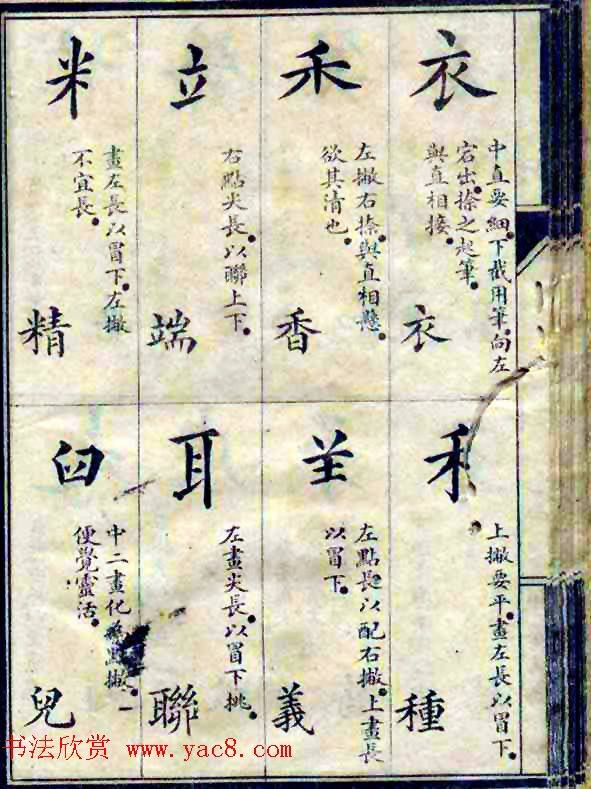 衣
中直要細。下截用筆。向左
宕出。捺之起筆。
與直相接。
衣
禾
左撇右捺。與直相懸。
欲其清也。
香
立
右點尖長。以聯上下。
端
米
畫左長。以冒下。左撇
不宜長。
精
禾
上撇要平。畫左長。以冒下。
種
左點長。以配右撇。上畫長
以冒下。
義
耳
左畫尖長。以冒下挑。
聯
臼
中二畫化為點撇。
便覺靈活。
兒
书法欣赏 www.yac8.com